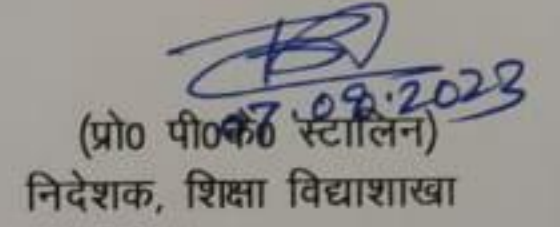 07.08.2023
(प्रो0 पी0के0 स्टालिन)
निदेशक, शिक्षा विद्याशाखा